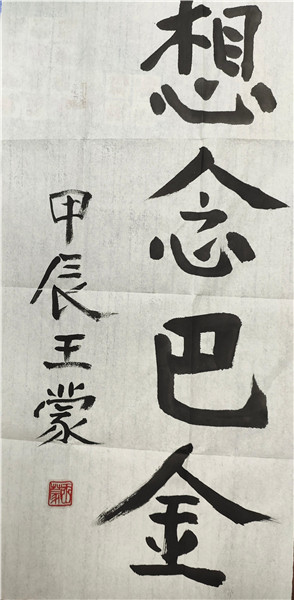 想念巴金
甲辰王蒙